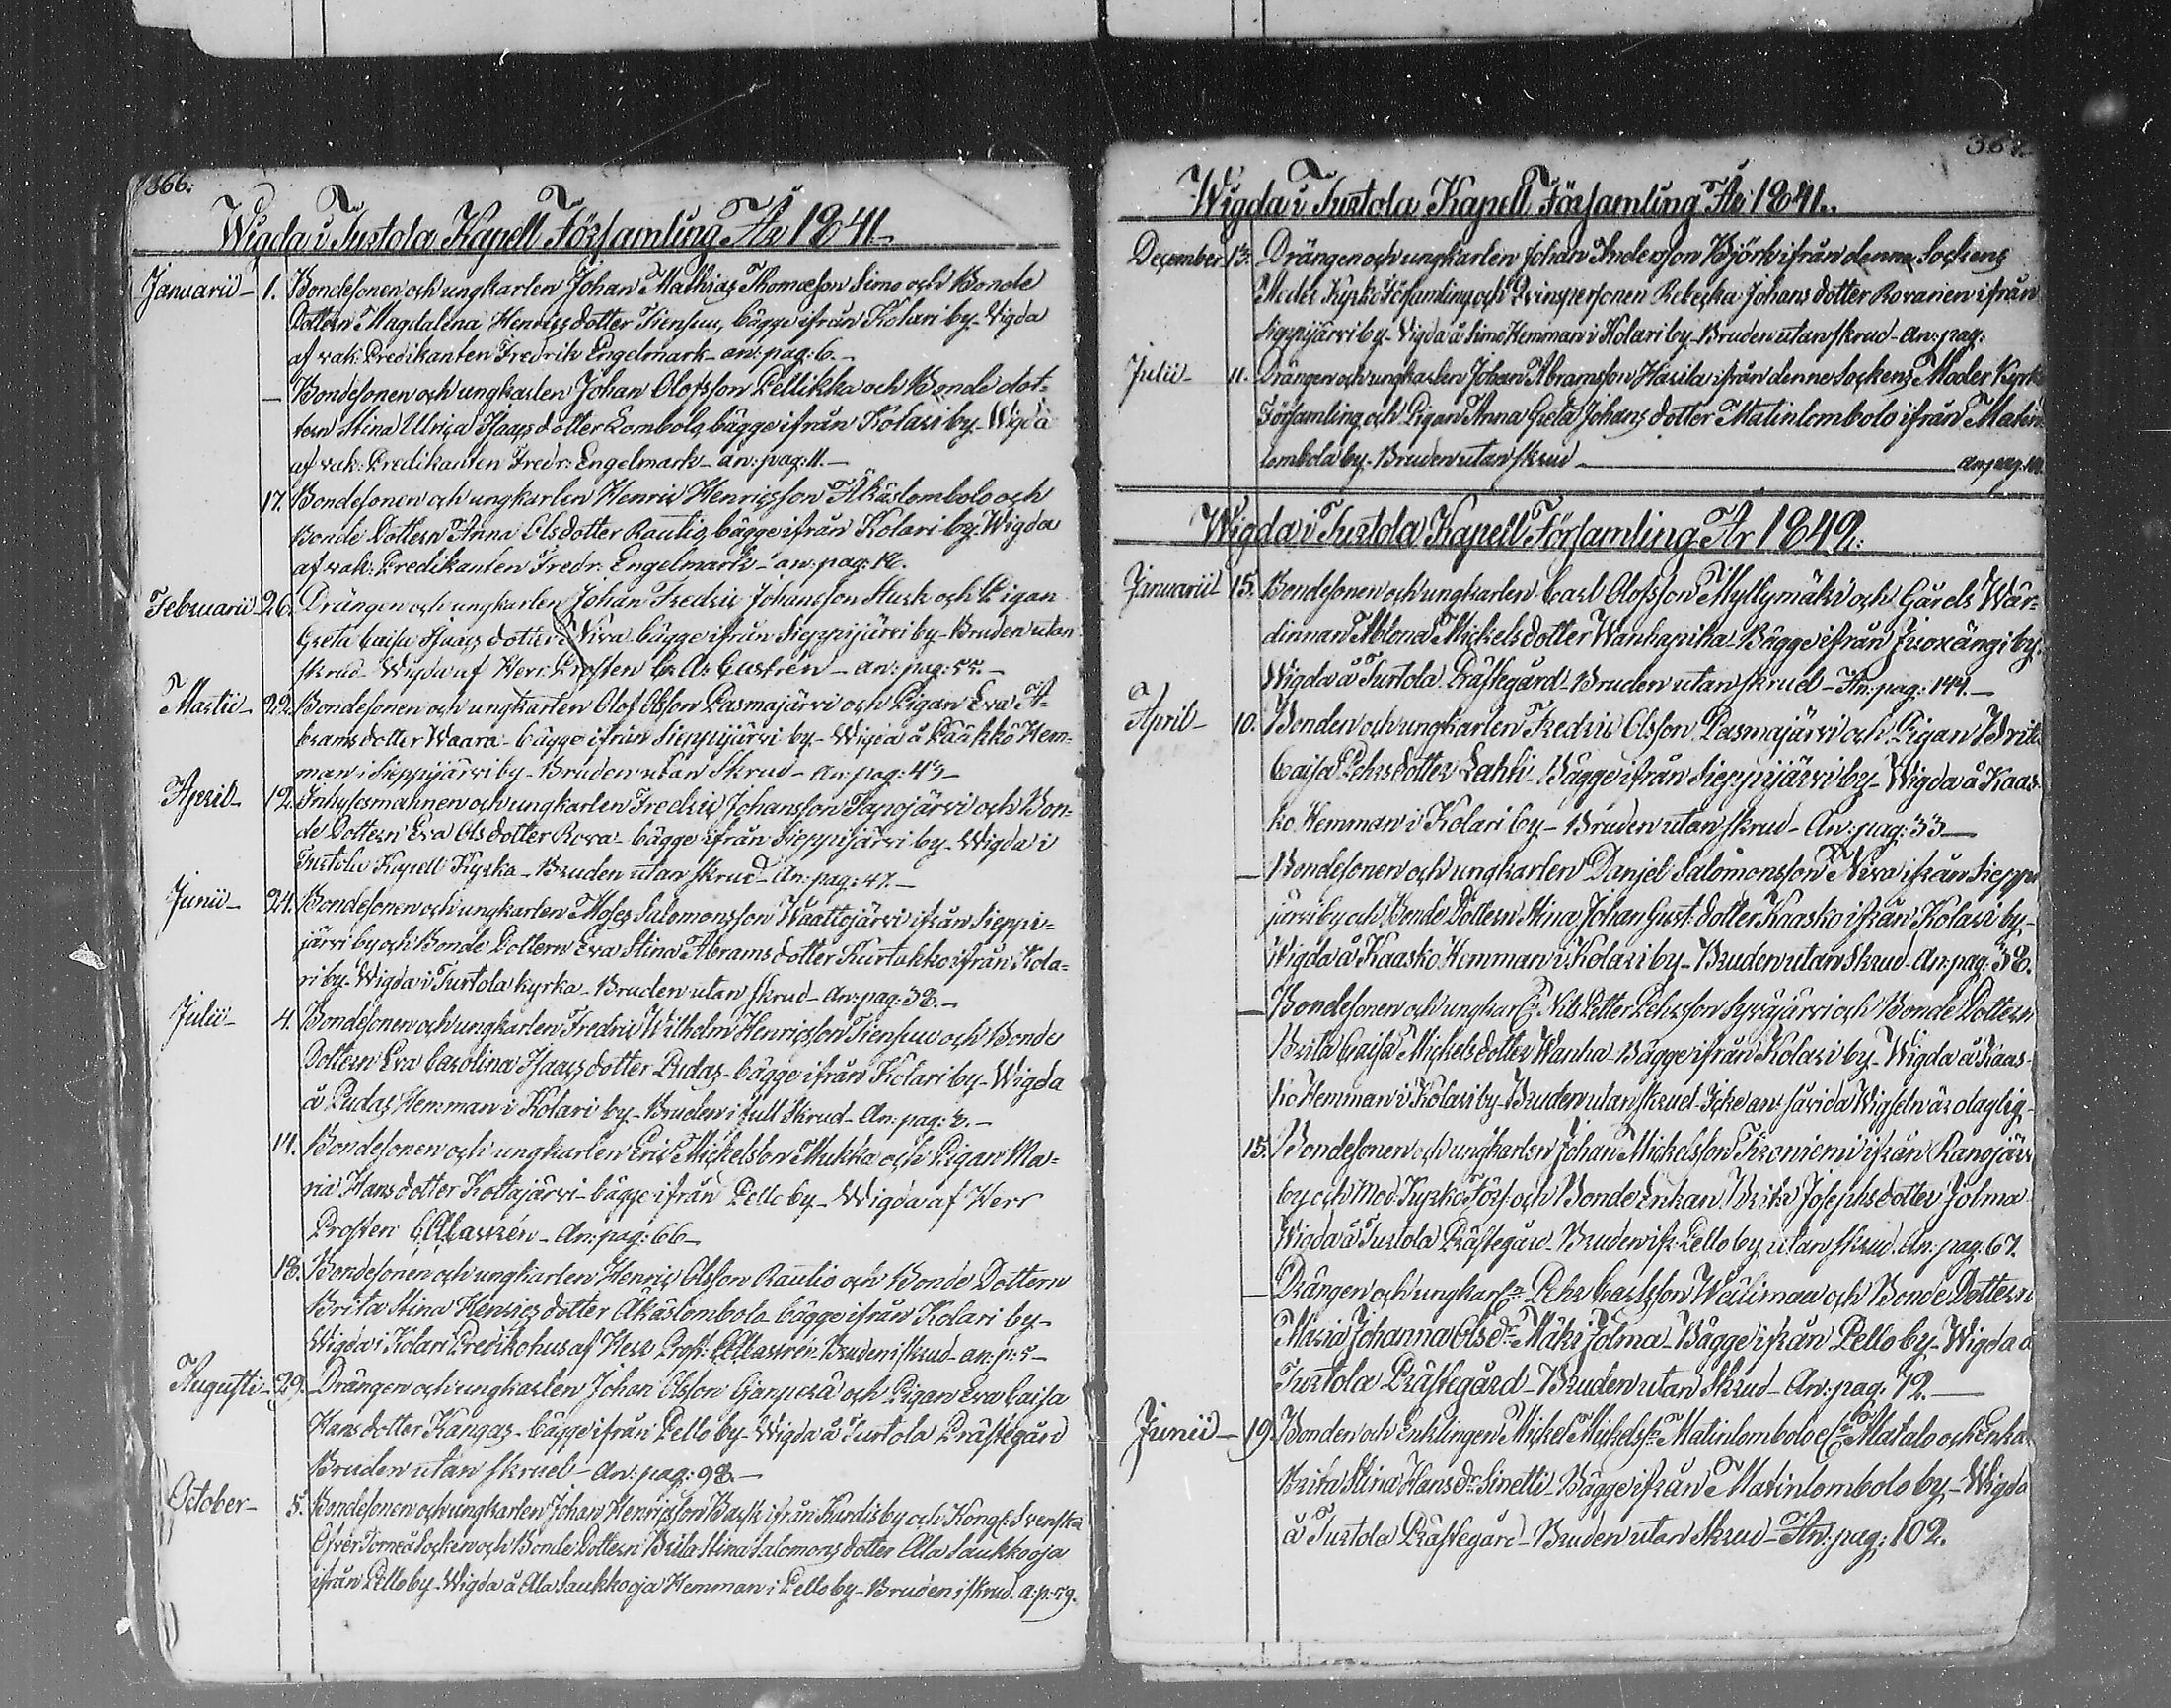 366.
Wigda i Turtola Kapell Församling År 1841.
Januarii 1. Bondesonen och ungkarlen Johan Mathias Thomæson Simo och Bonde
Dottern Magdalena Henricsdotter Tiensuu, bägge ifrån Kolari by. Vigda
af vak: Predikanten Fredrik Engelmark - an: pag: 6.-
— Bondesonen och ungkarlen Johan Olofsson Pellikka och Bonde dot-
tern Stina Ulrica Isaacsdotter Lombolo, bägge ifrån Kolari by. Wigda
af vak: Predikanten Fredr: Engelmark - an: pag: 11.-
17. Bondesonen och ungkarlen Henric Henricsson Äkäslombolo och
Bonde Dottern Anna Olsdotter Rautio, bägge ifrån Kolari by. Wigda
af vak: Predikanten Fredr: Engelmark - an: pag:
Februarii 26. Drängen och ungkarlen Johan Fredric Johansson Stark och Pigan
Greta Caisa Isaacs dotter Niva bägge ifrån Sieppijärvi by - Bruden utan
skrud - Wigda af Herr Prosten C. A: Castrén - an: pag: 55.-
Martii 22. Bondesonen och ungkarlen Olof Olsson Pasmajärvi och Pigan Eva A-
brams dotter Waara - bägge ifrån Sieppijärvi by - Wigda å Pääkkö Hem-
man i Sieppijärvi by - Bruden utan Skrud - an: pag: 43 -
April 12. Inhysesmannen och ungkarlen Fredric Johansson Tapojärvi och Bon-
de Dottern Eva Ols dotter Rova - bägge ifrån Sieppijärvi by - Wigda i
Turtola Kapell Kyrka - Bruden utan skrud - An: pag: 47.-
Junii 24. Bondesonen och ungkarlen Moses Salomonsson Waattojärvi ifrån Sieppi-
järvi by och Bonde Dottern Eva Stina Abrams dotter Kurtakko ifrån Kola-
ri by. Wigda i Turtola kyrka - Bruden utan skrud - an: pag: 38.-
Julii 4. Bondesonen och ungkarlen Fredric Wilhelm Henricsson Tiensuu och Bonde
Dottern Eva Carolina Isaacs dotter Rudas - bägge ifrån Kolari by - Wigda
å Rudas Hemman i Kolari by - Bruden i full Skrud - An: pag:
11. Bondesonen och ungkarlen Eric Mickelsson Mukka och Pigan Ma-
ria Hans dotter Kottajärvi - bägge ifrån Pello by - Wigda af Herr
Prosten C. A. Castrén - An: pag: 66 -
18. Bondesonen och ungkarlen Henric Olsson Rautio och Bonde Dottern
Brita Stina Henrics dotter Äkäslombolo bägge ifrån Kolari by -
Wigda i Kolari Predikohus af Herr Prost: C A Castrén - Bruden i skrud - an: p: 5 -
Augusti 29. Drängen och ungkarlen Johan Olsson och Pigan Eva Caisa
Hans dotter Kangas - bägge ifrån Pello by - Wigda å Turtola Prästegård
Bruden utan skrud - an: pag: 98.-
October 5. Bondesonen och ungkarlen Johan Henricsson Back ifrån Kardis by och Kongl: Svenska
Öfver Torneå Socken och Bonde Dottern Brita Stina Salomons dotter Ala Saukkooja
ifrån Pello by - Wigda å Ala Saukkooja Hemman i Pello by - Bruden i skrud. a: p: 59.
367.
Wigda i Turtola Kapell Församling År 1841.
December 13. Drängen och ungkarlen Johan Andersson Björk ifrån denna Sockens
Moder Kyrko Församling och Qvinspersonen Rebecka Johans dotter Rovanen ifrån
Sieppijärvi by - Vigda å Simo Hemman i Kolari by - Bruden utan skrud - An: pag:
Julii 11. Drängen och ungkarlen Johan Abramsson Harila ifrån denne Sockens Moder Kyrk
Församling och Pigan Anna Greta Johans dotter Matinlombolo ifrån Matin
lombola by - Bruden utan skrud — an: pag:
Wigda i Turtola Kapell Församling År 1842.
Januarii 15. Bondesonen och ungkarlen Carl Olofsson Myllymäki och Gårds Wär-
dinnan Mickels dotter Wanhapiha - Bägge ifrån Juoxängi by.
Wigda å Turtola Prästegård - Bruden utan skrud - An: pag: 144.-
April 10. Bonden och ungkarlen Fredric Olsson Pasmajärvi och Pigan Brita
Caisa Pehrs dotter Lahti - Bägge ifrån Sieppijärvi by - Wigda å Kaas-
ko Hemman i Kolari by - Bruden utan skrud - An: pag: 33 —
— Bondesonen och ungkarlen Danjel Salomonsson Niva ifrån Sieppi
järvi by och Bonde Dottern Stina Johan Gust: dotter Kaasko ifrån Kolari by -
Wigda å Kaasko Hemman i Kolari by - Bruden utan Skrud - An: pag: 38.
— Bondesonen och ungkar: Nils Petter Pehrsson Syväjärvi och Bonde Dottern
Brita Caisa Mickels dotter Wanha - Bägge ifrån Kolari by - Wigda å Kaas-
ko Hemman i Kolari by - Bruden utan skrud - Icke an: Wigseln är olaglig -
15. Bondesonen och ungkarlen Johan Mickelsson Kroniemi ifrån Ranojärv
by och Mod: Kyrko Förs: och Bonde Enkan Brita Josephs dotter Jolma
Wigda å Turtola Prästegård - Bruden ifr: Pello by utan skrud. An: pag: 67.
— Drängen och ungkarl: Pehr Carlsson Wälimaa och Bonde Dottern
Maria Johanna Ols dr: Mäki Jolma - Bägge ifrån Pello by - Wigda å
Turtola Prästegård - Bruden utan Skrud - An: pag: 72.—
Junii 19. Bonden och Enklingen Mickel Mickelss: Matinlombolo Matalo och Enka
Brita Stina Hans dr: Sinetti - Bägge ifrån Matinlombolo by - Wigda
å Turtola Prästegård - Bruden utan Skrud - An: pag: 102.